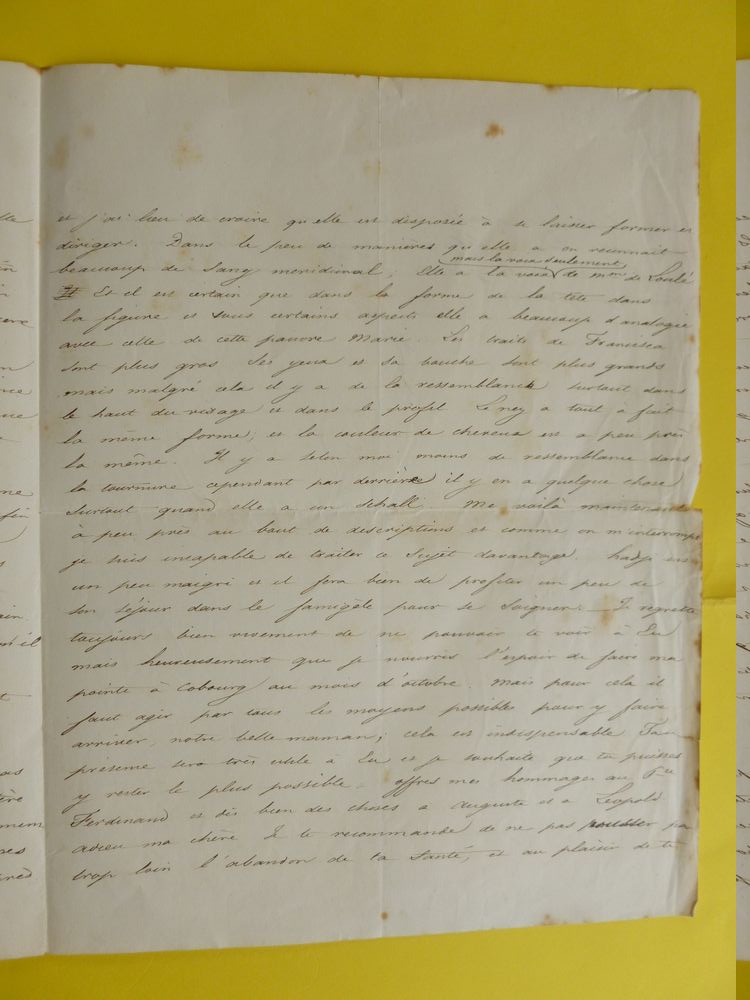 et j'ai lieu de croire qu'elle est disposée à se laisser former et
diriger. Dans le peu de manières qu'elle a on reconnait
beaucoup de Sang meridinal; Elle a la voix de Mme de Loulé
mais la voix seulement
Et il est certain que dans la forme de la tête dans
la figure et sous certains aspects elle a beaucoup d'analogie
avec celle de cette pauvre Marie. Les traits de Francisca
sont plus gros Ses yeux et sa bouche sont plus grands
mais malgré cela il y a de la ressemblance surtout dans
le haut du visage et dans le profil Le nez a tout à fait
la même forme; et la couleur de cheveux est a peu près
la même. Il y a selon moi moins de ressemblance dans
la tournure cependant par derrière il y en a quelque chose
surtout quand elle a un schall. Me voilà maintenant
à peu près au bout de descriptions et comme on m'interrompt
je suis incapable de traiter ce Sujet davantage. Hadjy est
un peu maigri et il fera bien de profiter un peu de
son séjour dans le famigèle pour se Soigner. Je regrette
toujours bien vivement de ne pouvoir te voir à Eu
mais heureusement que je nourris l'espoir de faire ma
pointe à Cobourg au mois d'octobre. Mais pour cela il
faut agir par tous les moyens possibles pour y faire
arriver, notre belle maman; cela est indispensable Ta
présence sera très utile à Eu et je souhaite que tu puisses
y rester le plus possible. offres mes hommages au Pce
Ferdinand et dis bien des choses a Auguste et a Leopold
adieu ma chère Je te recommande de ne pas pousser par
trop loin l'abandon de ta Santé, et au plaisir de te